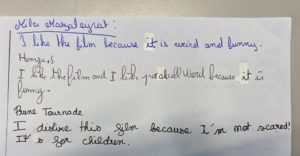 I like the film because it is weird and funny.
I like the film and I like word because it is
funny.
Prune Tournade
I dislike this film because I'm not scared!
It's for children.